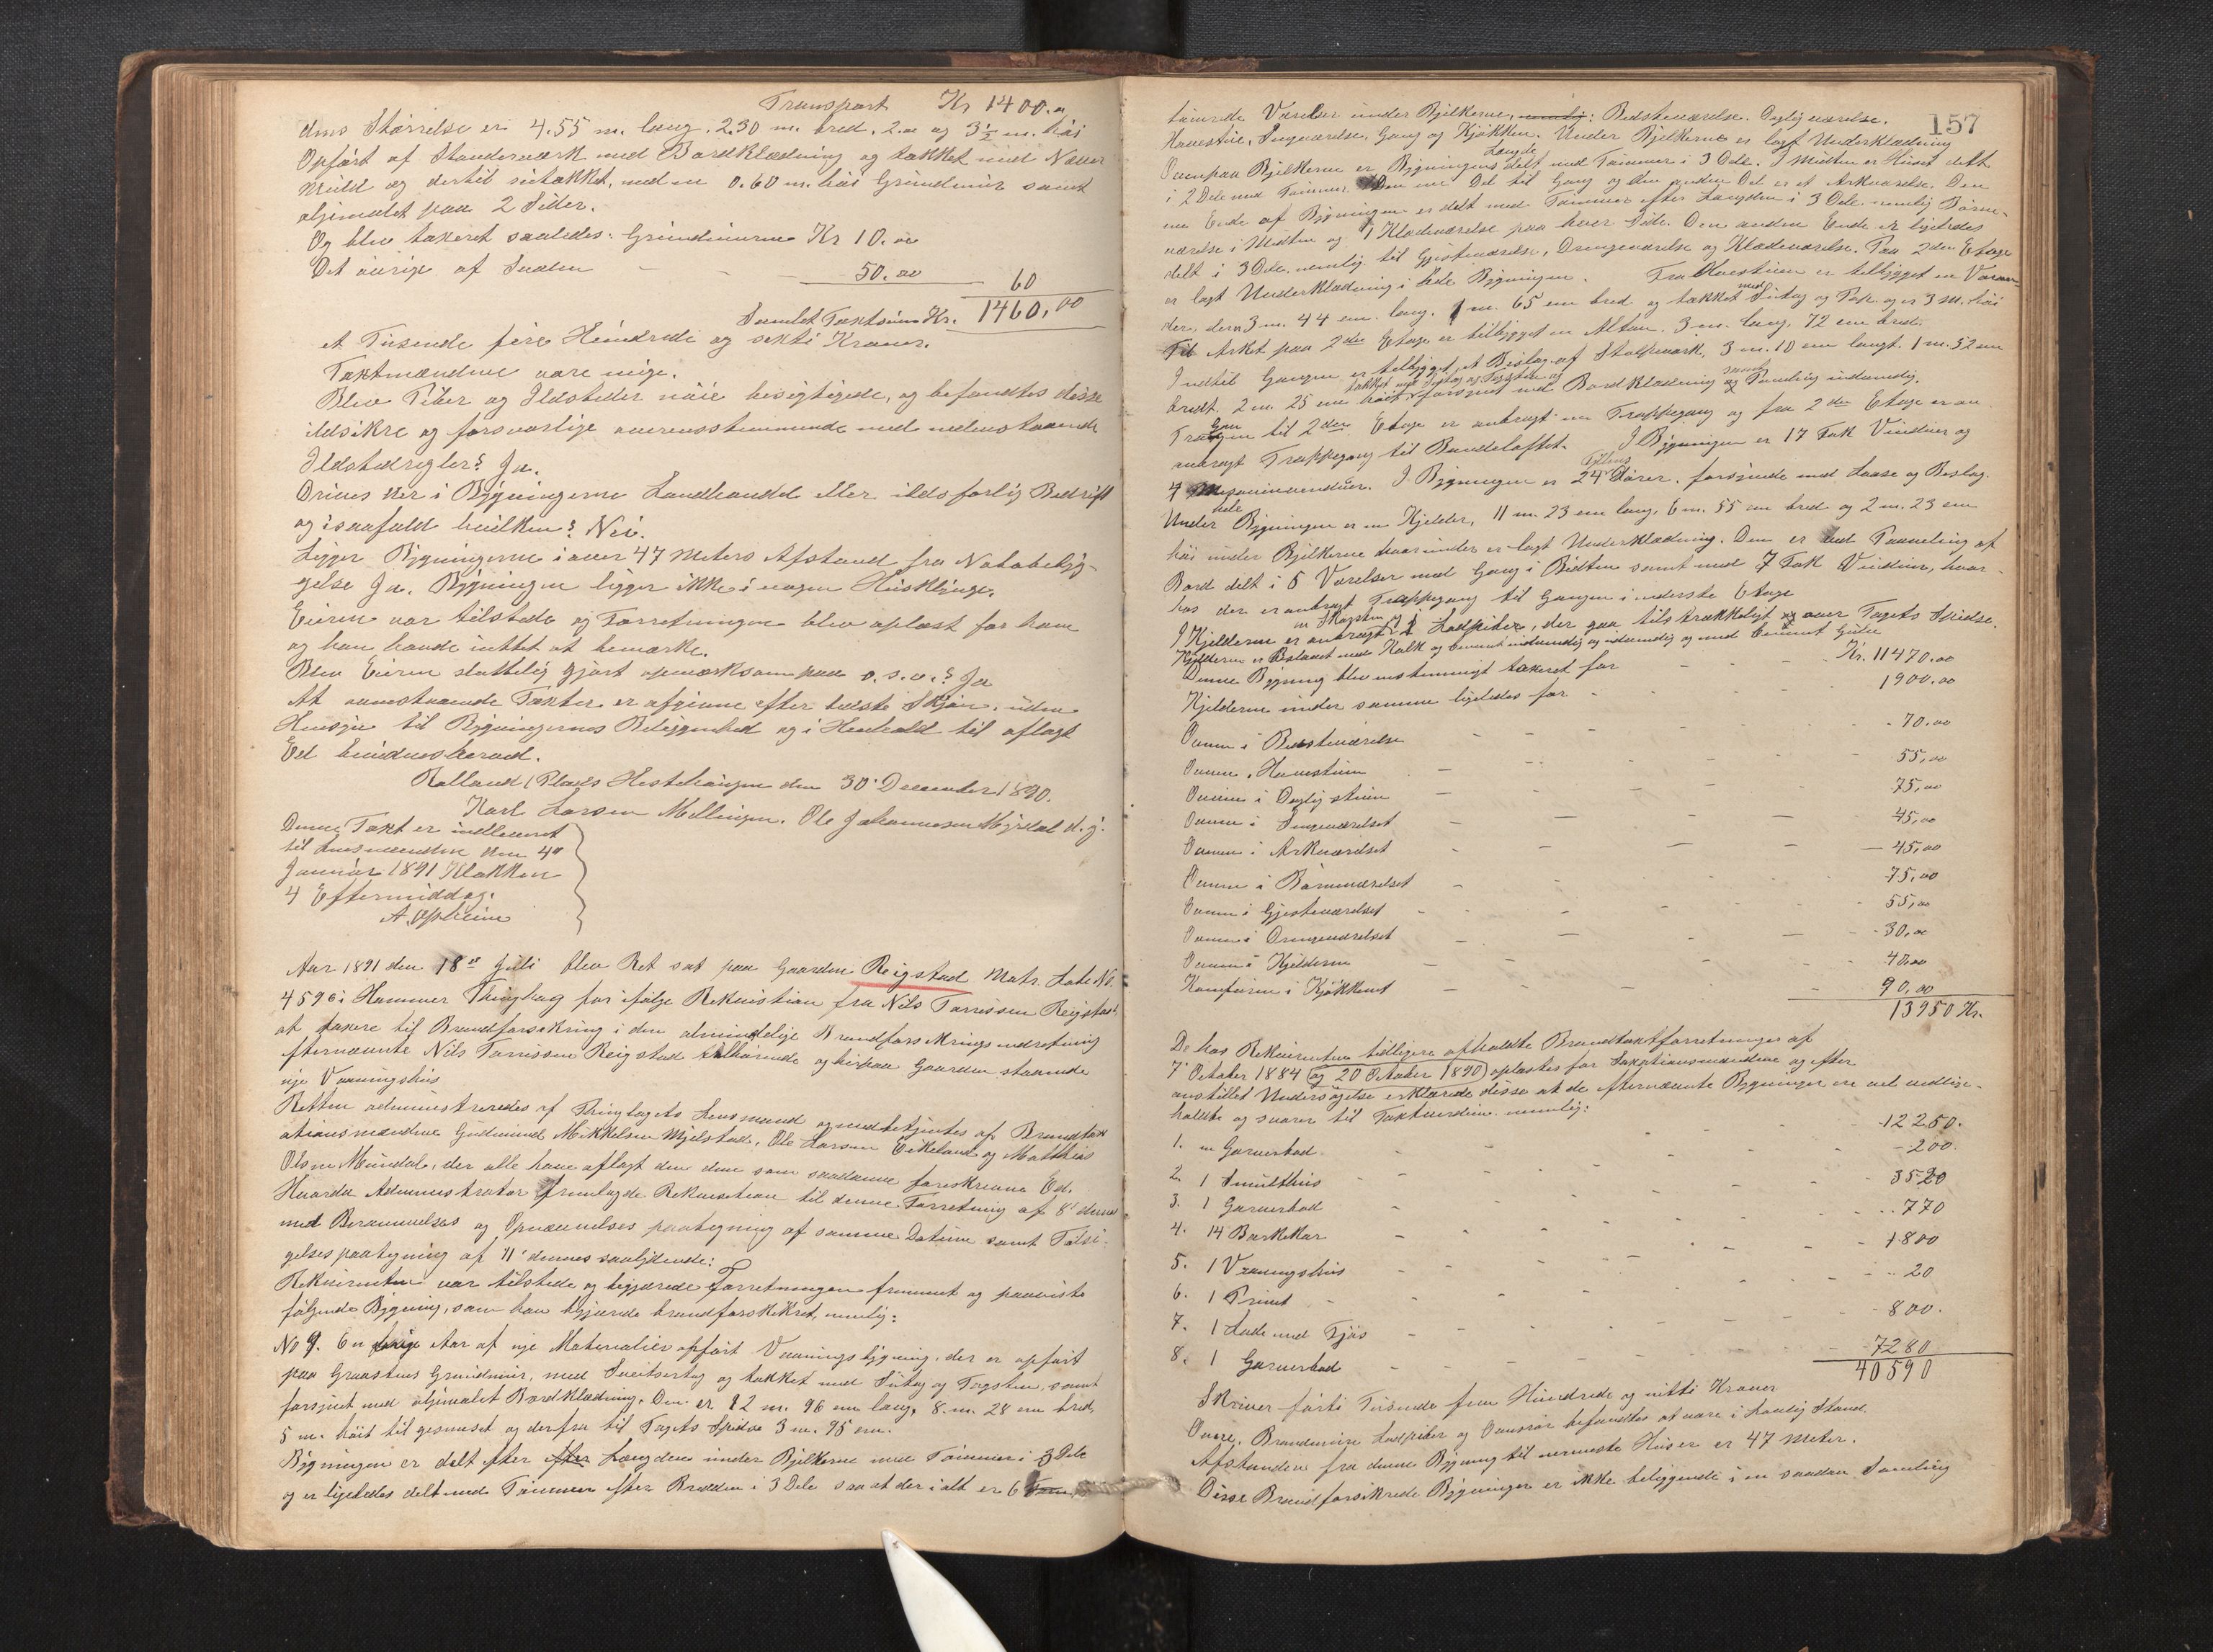 Transport Kr 1400.00
dens Størrelse er 4.55 m. lang, 2.30 m. bred, 2.00 og 3½ m. høi
Opført af Standerværk med Bordklædning og tækket med Næver
Muld og dertil sutækket, med en 0.60 m. høi Grundmur samt
oljemalet paa 2 Sider.
Og blev taxeret saaledes: Grundmurene Kr 10.00
Det øvrige af Sualen - - - 50.00 60
Samlet Taxtsum Kr. 1460,00
et Tusende fire Hundrede og sexti Kroner.
Taxtmændene vare enige.
Blev Piber og Ildsteder nøie besigtigede, og befandtes disse
ildsikre og forsvarlige overensstemmende med nedenstaaende
Ildstedregler? Ja.
Drives der i Bygningerne Landhandel eller ildsfarlig Bedrift
og isaafald hvilken? Nei.
Ligger Bygningerne i over 47 Meters Afstand fra Nabobebyg-
gelse Ja. Bygningen ligger ikke i nogen Husklynge.
Eieren var tilstede og Forretningen blev oplæst for ham
og han havde inttet at bemærke.
Blev Eieren sluttelig gjort opmærksom paa o.s.v.? Ja
At ovenstaaende Taxter er afgivne efter bedste Skjøn, uden
Hensyn til Bygningernes Beliggenhed og i Henhold til aflagt
Ed
Rolland (Plads Hestehaugen den 30' December 1890.
Karl Larsen Mellingen. Ole Johannessen Myrdal
Denne Taxt er indleveret
til Lensmanden den 4de
Januar 1891 Klokken
4 Eftermiddag.
A. Opheim
Aar 1891 den 18de Juli blev Ret sat paa Gaarden Reigstad Matr. Løbe No.
459 i Hammer Thinglag for ifølge Rekvisition fra Nils Torrissen Reigstad,
at taxere til Brandforsikring i den almindelige Brandforsikringsindretning
efternævnte Nils Torrissen Reigstad tilhørende og her paa Gaarden staaende
nye Vaaningshus
Retten administreredes af Thinglagets Lensmand og medbetjentes af Brandtax
ationsmændene Gudmund Mikkelsen Mjelstad, Ole Larsen Eikeland og Matthias
Olsen Mundal, der alle have aflagt den dem som saadanne foreskrevne Ed.
Hvorda Administrator fremlagde Rekvisition til denne Forretning af 8' dennes
med Berammelses og Opnævnelses paategning af samme Datum samt Tilsi-
gelsespaategning af 11' dennes saalydende:
Rekvirenten var tilstede og begjærede Forretningen fremmet og paaviste
følgende Bygning, som han begjærede brandforsikkret, nemlig:
No 9. En forrige Aar af nye Materialier opført Vaaningsbygning, der er opført
paa Graastens Grundmur, med Sveitsertag og tækket med Sutag og Tagsten, samt
forsynet med oljemalet Bordklædning. Den er 12 m. 96 cm lang, 8. m. 28 cm bred,
5 m. høit til gesimset og derfra til Tagets Spidse 3 m. 95 cm.
Bygningen er delt efter Længden under Bjelkerne med Tømmer i 3 Dele
og er ligeledes delt med Tømmer efter Bredden i 3 Dele saa at der i alt er 6
157
tømrede Værelser under Bjelkerne, nemlig: Bedsteværelse, Dagligværelse,
Havestue, Sengeværelse, Gang og Kjøkken. Under Bjelkerne er lagt Underklædning
Ovenpaa Bjelkerne er Bygningens Længde delt med Tømmer i 3 Dele. I Midten er Huset delt
i 2 Dele med Tømmer. Den ene Del til Gang og den anden Del er et Arkværelse. Den
ene Ende af Bygningen er delt med Tømmer efter Længden i 3 Dele nemlig Børne-
værelse i Midten og 1 Klædeværelse paa hver Side. Den anden Ende er ligeledes
delt i 3 Dele, nemlig til Gjesteværelse, Drengeværelse og Klædeværelse. Paa 2den Etage
er lagt Underklædning i hele Bygningen. Fra Havestuen er tilbygget en Veran-
der, den 3 m. 44 cm. lang, 1 m. 65 cm bred og tækket med Sutag og er 3 m. høi
Til Arket paa 2den Etage er tilbygget en Altan. 3 m. lang, 72 cm bred.
Indtil Gangen er tilbygget et Bislag af Stolpeværk, 3 m. 10 cm langt. 1 m. 52 cm
bredt. 2 m. 25 cm høit tækket med Sutag og Tagsten og forsynet med Bordklædning samt Paneling indvendig.
Fra Gangen til 2den Etage er anbragt en Trappegang og fra 2den Etage er en
anbragt Trappegang til Bandeloftet. I Bygningen er 17 Fak Vinduer og
4 I Bygningen er 24 Fyllings Dører, forsynede med Laase og Beslag.
Under hele Bygningen er en Kjelder, 11 m. 23 cm lang, 6 m. 55 cm bred og 2 m. 23 cm
høi under Bjelkerne hvorunder er lagt Underklædning. Den er ved Paneling af
Bord delt i 5 Værelser med Gang i Midten samt med 7 Fak Vinduer, hvor-
hos der er anbragt Trappegang til Gangen i nederste Etage
I Kjelderen er anbragt en Skorsten og 1 Lodpibe, der gaa tilstrækkeligt over Tagets Spidse.
Kjelderen er Pslaaet med Kalk og Cement indvendig og udvendig og med Cement Gulv
Denne Bygning blev enstemmigt taxeret for - - - Kr. 11470.00
Kjelderen under samme ligeledes for - - - 1900.00
Ovnen i Bedsteværelse - - - 70.00
Ovnen i Havestuen - - - 55,00
Ovnen i Dagligstuen - - - 75,00
Ovnen i Sengeværelset - - - 45,00
Ovnen i Arkværelset - - - 45,00
Ovnen i Børneværelset - - - 75,00
Ovnen i Gjesteværelset - - - 55,00
Ovnen i Drengeværelset - - - 30,00
Ovnen i Kjelderen - - - 40.00
Komfuren i Kjøkkenet - - - 90,00
13950 Kr.
De hos Rekvirenten tidligere afholdte Brandtaxtforretninger af
7' October 1884 og 20 October 1890 oplæstes for Taxationsmændene og efter
anstillet Undersøgelse erklærede disse at de efternævnte Bygninger ere vel vedlige-
holdte og svarer til Taxtverdien nemlig:
1. en Garverbod - - - 12250.
2. 1 Smulthus - - - 200.
3. 1 Garverbod - - - 3520
4. 14 Barkekar - - - 770
5. 1 Vaaningshus - - - 1800
6. 1 Privet - - - 20
7. 1 Lade med Fjøs - - - 800.
8. 1 Garverbod - - - 7280
40590
Skriver førti Tusende fem Hundrede og nitti Kroner
Ovne, Brandmure Lodpiber og Ovnsrør befandtes at være i Lovlig Stand.
Afstanden fra denne Bygning til nærmeste Huser er 47 Meter.
Disse Brandforsikrede Bygninger er ikke beliggende i en saadan Samling